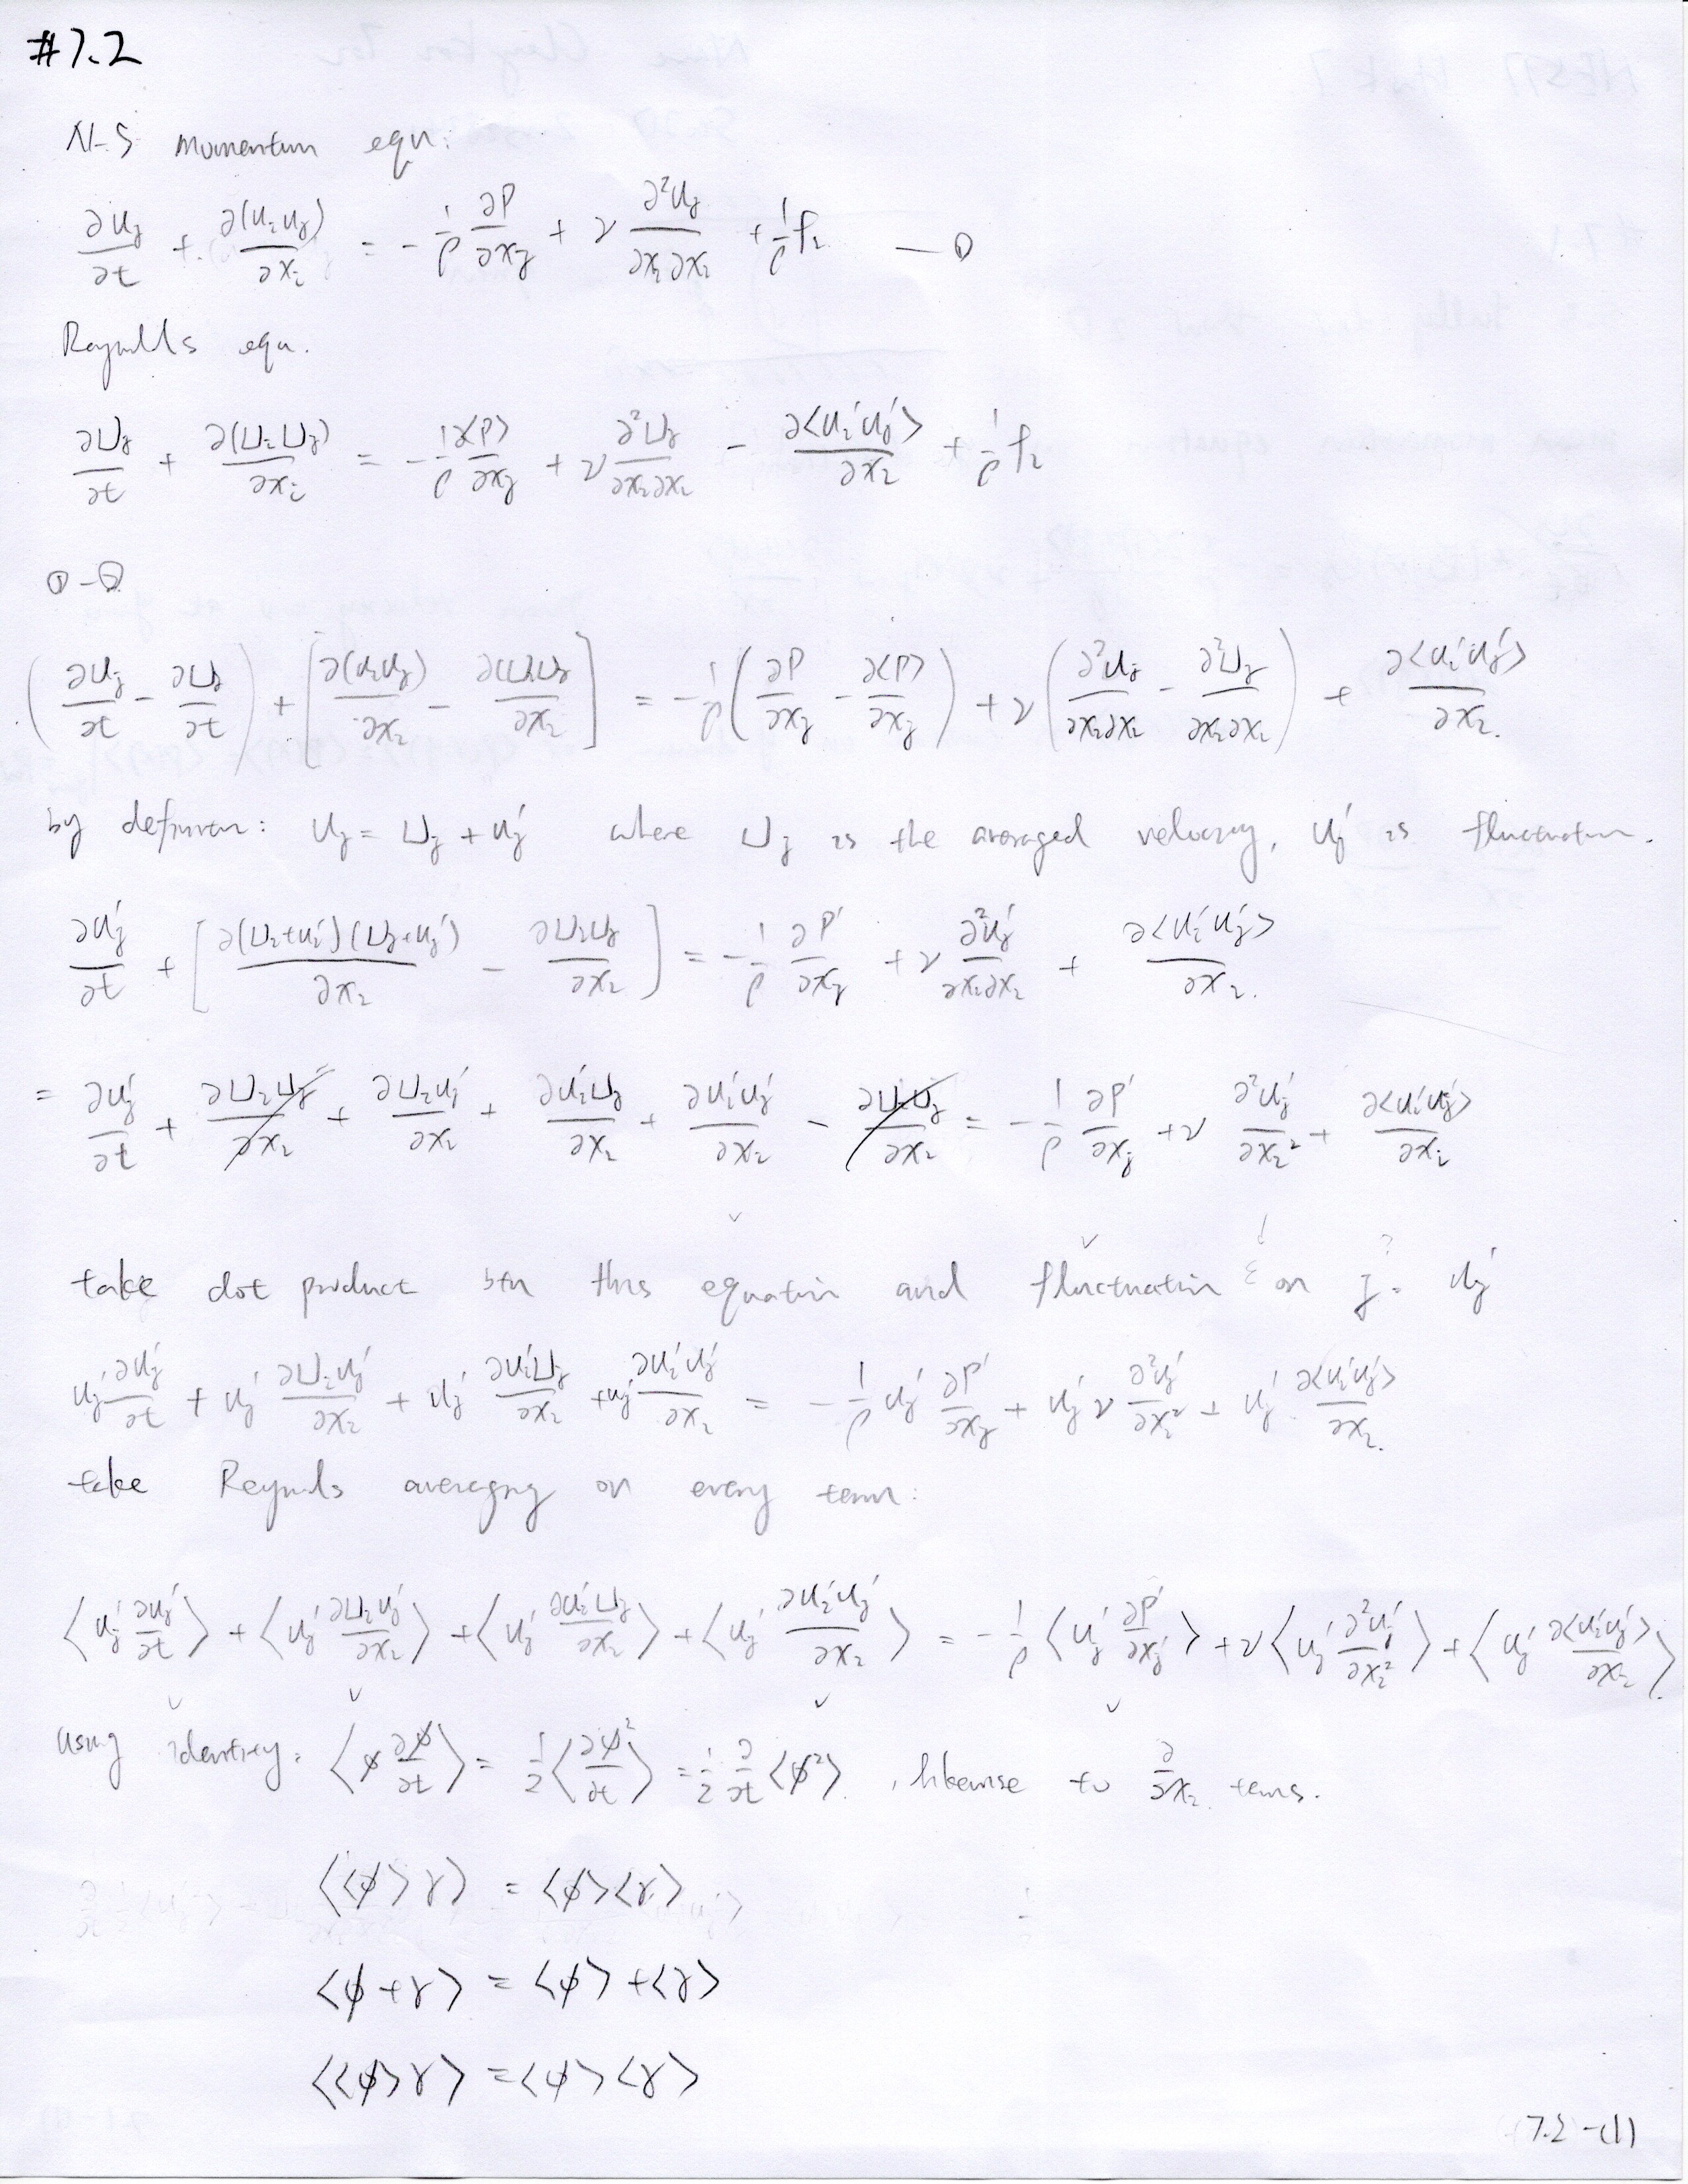 #7.2
N-S momentum equ:
∂u_j/∂t + ∂(u_i u_j)/∂x_i = - 1/ρ ∂P/∂x_j + ν ∂²u_j/∂x_i∂x_i + 1/ρ f_i — ①
Reynolds equ.
∂U_j/∂t + ∂(U_i U_j)/∂x_i = - 1/ρ ∂<P>/∂x_j + ν ∂²U_j/∂x_i∂x_i - ∂<u_i' u_j'>/∂x_i + 1/ρ f_i
① - ②
(∂u_j/∂t - ∂U_j/∂t) + [∂(u_i u_j)/∂x_i - ∂U_i U_j/∂x_i] = - 1/ρ (∂P/∂x_j - ∂<P>/∂x_j) + ν (∂²u_j/∂x_i∂x_i - ∂²U_j/∂x_i∂x_i) + ∂<u_i' u_j'>/∂x_i.
by definition: u_j = U_j + u_j' where U_j is the averaged velocity, u_j' is fluctuation.
∂u_j'/∂t + [∂(U_i+u_i')(U_j+u_j')/∂x_i - ∂U_i U_j/∂x_i] = - 1/ρ ∂P'/∂x_j + ν ∂²u_j'/∂x_i∂x_i + ∂<u_i' u_j'>/∂x_i.
= ∂u_j'/∂t + ∂U_i U_j/∂x_i + ∂U_i u_j'/∂x_i + ∂u_i' U_j/∂x_i + ∂u_i' u_j'/∂x_i - ∂U_i U_j/∂x_i = - 1/ρ ∂P'/∂x_j + ν ∂²u_j'/∂x_i² + ∂<u_i' u_j'>/∂x_i
take dot product btn this equation and fluctuation on j: u_j'
u_j' ∂u_j'/∂t + u_j' ∂U_i u_j'/∂x_i + u_j' ∂u_i' U_j/∂x_i + u_j' ∂u_i' u_j'/∂x_i = - 1/ρ u_j' ∂P'/∂x_j + u_j' ν ∂²u_j'/∂x_i² + u_j' ∂<u_i' u_j'>/∂x_i.
take Reynolds averaging on every term:
<u_j' ∂u_j'/∂t> + <u_j' ∂U_i u_j'/∂x_i> + <u_j' ∂u_i' U_j/∂x_i> + <u_j' ∂u_i' u_j'/∂x_i> = - 1/ρ <u_j' ∂P'/∂x_j> + ν <u_j' ∂²u_j'/∂x_i²> + <u_j' ∂<u_i' u_j'>/∂x_i>.
using identity: <φ ∂φ/∂t> = 1/2 <∂φ²/∂t> = 1/2 ∂/∂t <φ²>. , likewise to ∂/∂x_i terms.
<<φ>γ> = <φ><γ>
<φ+γ> = <φ>+<γ>
<<φ>γ> = <φ><γ>
7.2-(1)